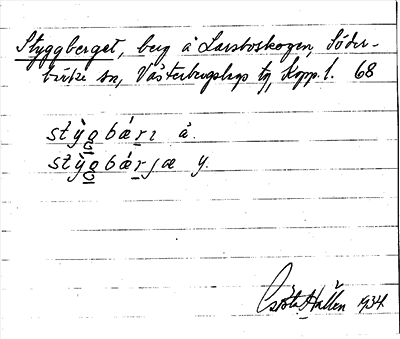 Styggberget, berg å Larsboskogen, Söder-
bärke sn, Västerbergslags tg, Kopp. l. 68
stỳgbærı ä.
stỳgbærjæ y.
Gösta Hallén 1934